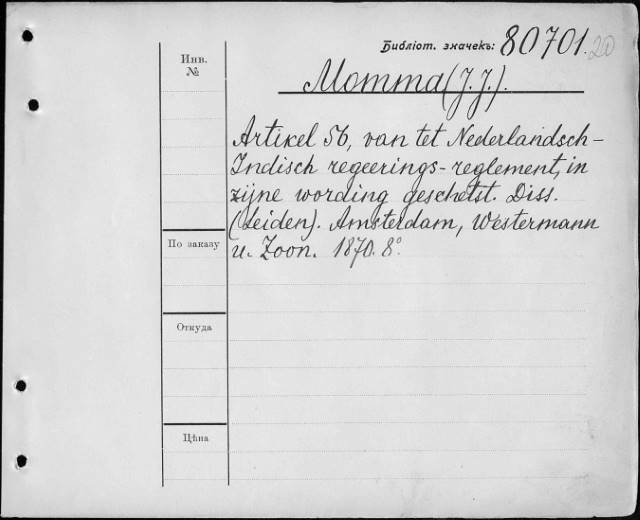 Библіот. значекъ: 80701.20
Инв. №
Momma (J. J.).
Artikel 56, van tet Nederlandsch-
Indisch regeerings-reglement, in
zijne wording geschetst. Diss.
(Leiden). Amsterdam, Westermann
u. Zoon. 1870. 8°
По заказу
Откуда
Цѣна